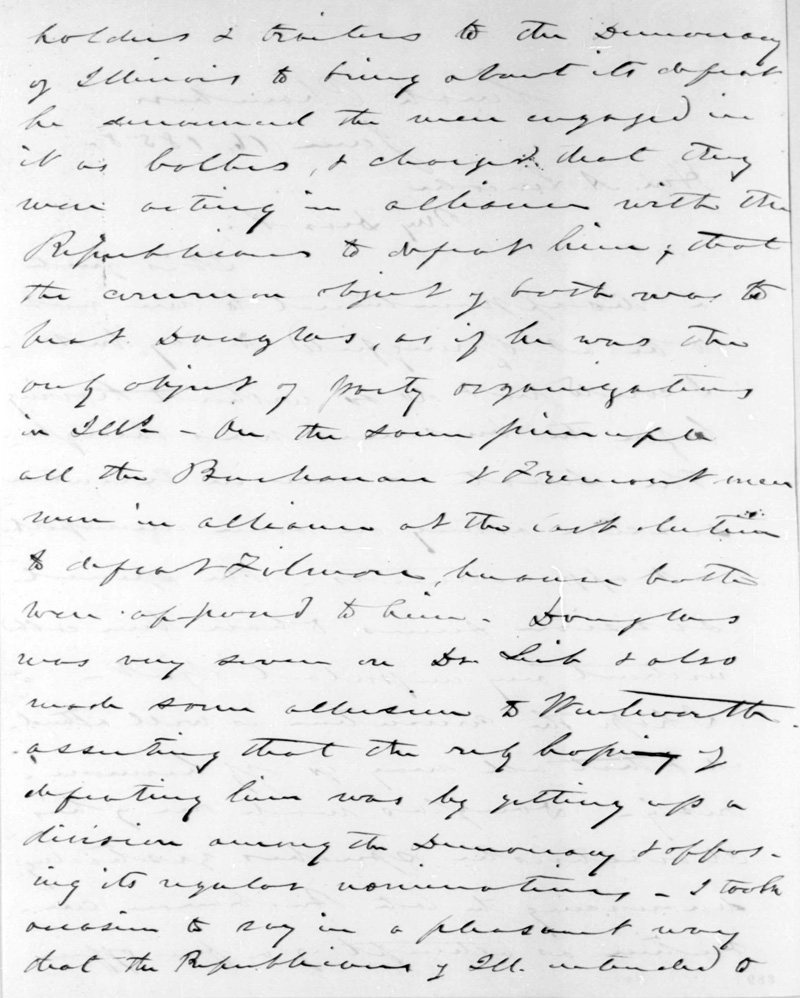 holders & traitors to the Democracy
of Illinois to bring about its defeat
he denounced the men engaged in
it as bolters, & charged that they
were acting in alliance with the
Republicans to defeat him, & that
the common object of both was to
beat Douglas, as if he was the
only object of party organization
in Ills - On the same principle
all the Buchanan & Fremont men
were in alliance at the last election
to defeat Filmore, because both
were opposed to him. Douglas
was very severe on Dr. Leib & also
made some allusion to Wentworth.
asserting that the only hoping of
defeating him was by getting up a
division among the Democracy & oppos-
ing its regular nominations - I took
occasion to say in a pleasant way
that the Republicans of Ill. intended to